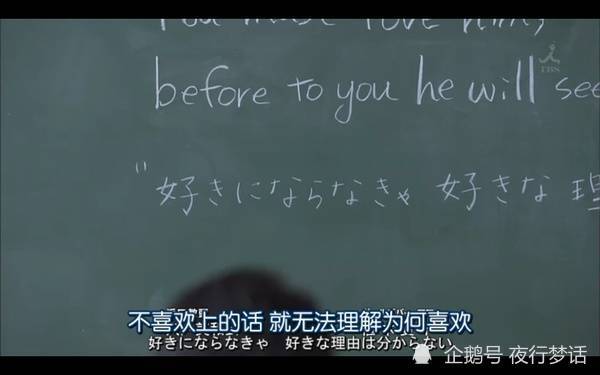 before to you he will see
TBS
"好きにならなきゃ 好きな 理
不喜欢上的话 就无法理解为何喜欢
好きにならなきゃ 好きな理由は分からない
企鹅号 夜行梦话